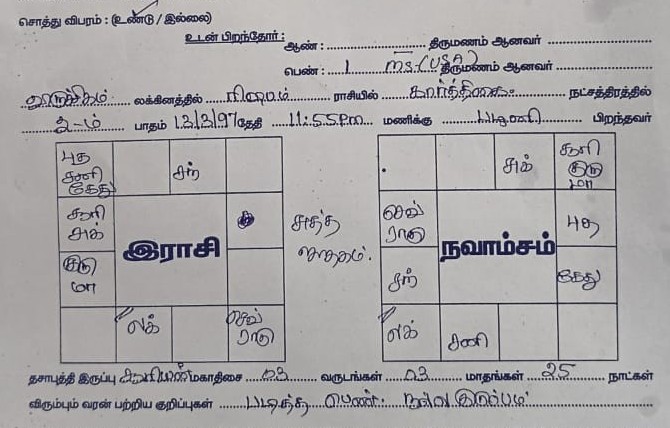 சொத்து விபரம் : (உண்டு / இல்லை)
உடன் பிறந்தோர் : ஆண் : திருமணம் ஆனவர்
பெண் : 1 MS-(USA) திருமணம் ஆனவர்
லக்கினத்தில் ரிஷபம் ராசியில் கார்த்திகை நட்சத்திரத்தில்
2-ம் பாதம் 13/3/97 தேதி 11:55 Pm மணிக்கு பிறந்தவர்
புத சனி கேது சந் சுக் சூரி குரு மா
சூரி சுக் சுத்த ஜாதகம். செவ் ராகு புத
இராசி நவாம்சம்
குரு மா சந் கேது
லக் செவ் ராகு லக் சனி
தசாபுத்தி இருப்பு சூரியன் மகாதிசை 03 வருடங்கள் 03 மாதங்கள் 25 நாட்கள்
விரும்பும் வரன் பற்றிய குறிப்புகள் படித்த பெண். நல்ல குடும்பம்